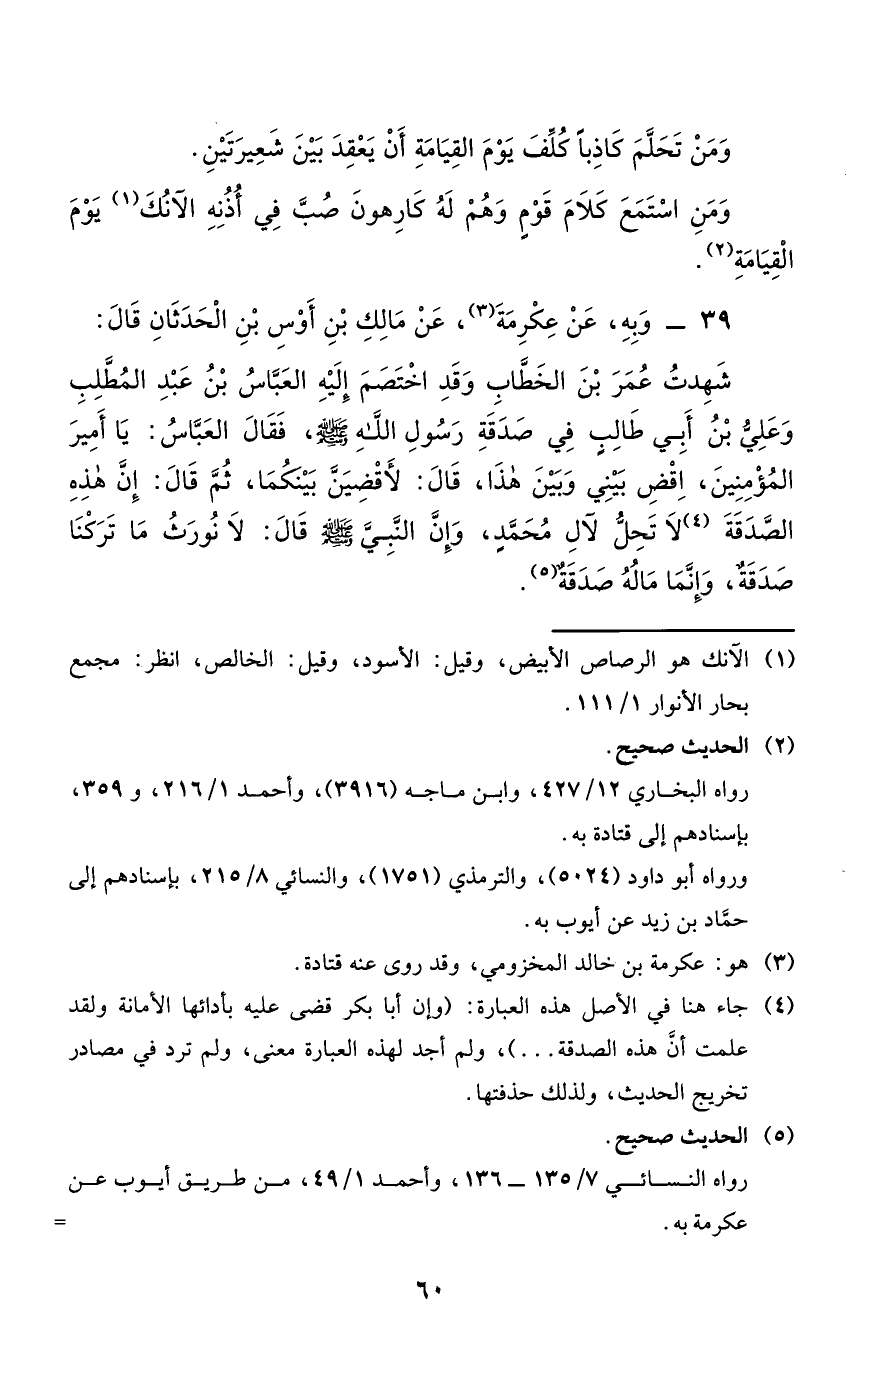 وَمَنْ تَحَلَّمَ كَاذِباً كُلِّفَ يَوْمَ القِيَامَةِ أَنْ يَعْقِدَ بَيْنَ شَعِيرَتَيْنِ.
وَمَنِ اسْتَمَعَ كَلَامَ قَوْمٍ وَهُمْ لَهُ كَارِهونَ صُبَّ فِي أُذُنِهِ الآنُكَ(١) يَوْمَ
الْقِيَامَةِ(٢).
٣٩ ــ وَبِهِ، عَنْ عِكْرِمَةَ(٣)، عَنْ مَالِكِ بْنِ أَوْسِ بْنِ الْحَدَثَانِ قَالَ:
شَهِدتُ عُمَرَ بْنَ الخَطَّابِ وَقَدِ اخْتَصَمَ إِلَيْهِ العَبَّاسُ بْنُ عَبْدِ المُطَّلِبِ
وَعَلِيُّ بْنُ أَبِي طَالِبٍ فِي صَدَقَةِ رَسُولِ اللَّهِ ﷺ، فَقَالَ العَبَّاسُ: يَا أَمِيرَ
المُؤْمِنِينَ، اِقْضِ بَيْنِي وَبَيْنَ هٰذَا، قَالَ: لأَقْضِيَنَّ بَيْنَكُمَا، ثُمَّ قَالَ: إِنَّ هٰذِهِ
الصَّدَقَةَ (٤)لاَ تَحِلُّ لآلِ مُحَمَّدٍ، وَإِنَّ النَّبِيَّ ﷺ قَالَ: لاَ نُورَثُ مَا تَرَكْنَا
صَدَقَةٌ، وَإِنَّمَا مَالُهُ صَدَقَةٌ(٥).
(١) الآنك هو الرصاص الأبيض، وقيل: الأسود، وقيل: الخالص، انظر: مجمع
بحار الأنوار ١/ ١١١.
(٢) الحديث صحيح.
رواه البخاري ١٢/ ٤٢٧، وابن ماجه (٣٩١٦)، وأحمد ١/ ٢١٦، و ٣٥٩،
بإسنادهم إلى قتادة به.
ورواه أبو داود (٥٠٢٤)، والترمذي (١٧٥١)، والنسائي ٨/ ٢١٥، بإسنادهم إلى
حمَّاد بن زيد عن أيوب به.
(٣) هو: عكرمة بن خالد المخزومي، وقد روى عنه قتادة.
(٤) جاء هنا في الأصل هذه العبارة: (وإن أبا بكر قضى عليه بأدائها الأمانة ولقد
علمت أنَّ هذه الصدقة...)، ولم أجد لهذه العبارة معنى، ولم ترد في مصادر
تخريج الحديث، ولذلك حذفتها.
(٥) الحديث صحيح.
رواه النسائي ٧/ ١٣٥ ــ ١٣٦، وأحمد ١/ ٤٩، من طريق أيوب عن
عكرمة به. =
٦٠